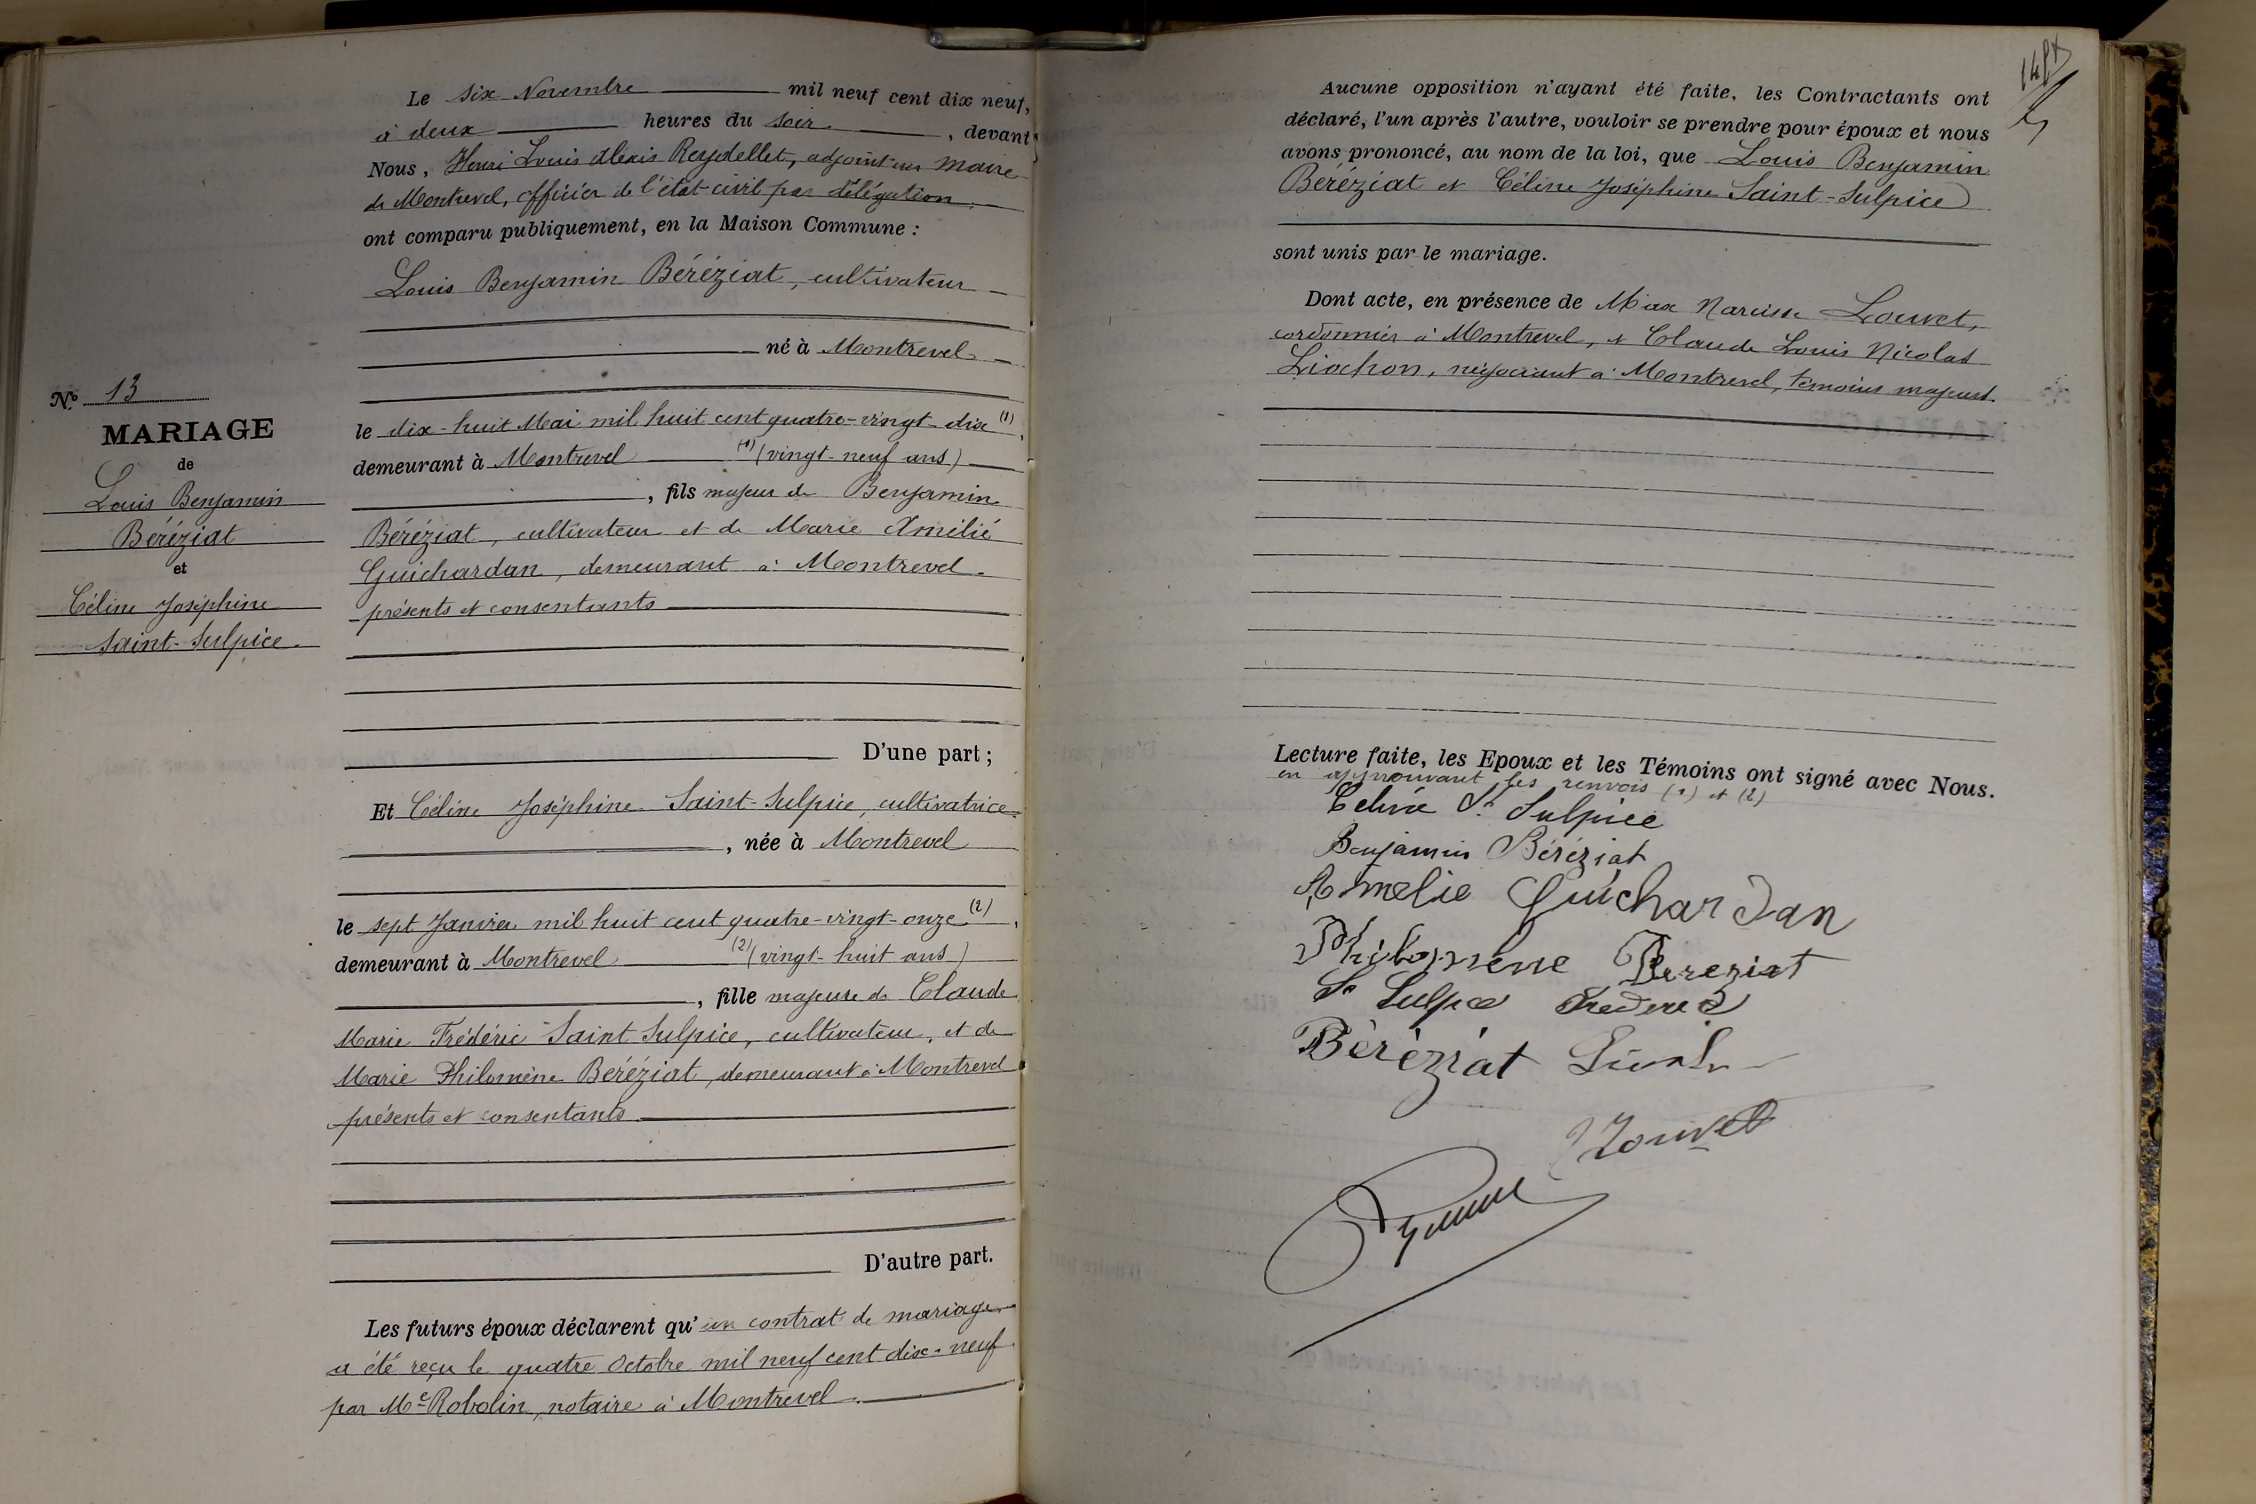 Le six Novembre mil neuf cent dix neuf,
à deux heures du soir, devant
Nous, Henri Louis Alexis Reydellet, adjoint au Maire
de Montrevel, officier de l'état civil par délégation
ont comparu publiquement, en la Maison Commune :
Louis Benjamin Béréziat, cultivateur
né à Montrevel
le dix-huit Mai mil huit cent quatre-vingt-dix (1),
demeurant à Montrevel (1) (vingt-neuf ans)
, fils majeur de Benjamin
Béréziat, cultivateur et de Marie Amélie
Guichardan, demeurant à Montrevel
présents et consentants
D'une part ;
Et Céline Joséphine Saint-Sulpice, cultivatrice
, née à Montrevel
le sept Janvier mil huit cent quatre-vingt-onze (2),
demeurant à Montrevel (2) (vingt-huit ans)
, fille majeure de Claude
Marie Frédéric Saint Sulpice, cultivateur, et de
Marie Philomène Béréziat, demeurant à Montrevel
présents et consentants
D'autre part.
Les futurs époux déclarent qu'un contrat de mariage
a été reçu le quatre Octobre mil neuf cent dix-neuf
par Me Robolin, notaire à Montrevel.
No 13
MARIAGE
de
Louis Benjamin
Béréziat
et
Céline Joséphine
Saint-Sulpice.
Aucune opposition n'ayant été faite, les Contractants ont
déclaré, l'un après l'autre, vouloir se prendre pour époux et nous
avons prononcé, au nom de la loi, que Louis Benjamin
Béréziat et Céline Joséphine Saint-Sulpice
sont unis par le mariage.
Dont acte, en présence de Max Narcisse Louvet,
cordonnier à Montrevel, et Claude Louis Nicolas
Liochon, négociant à Montrevel, témoins majeurs.
Lecture faite, les Epoux et les Témoins ont signé avec Nous.
en approuvant les renvois (1) et (2)
Céline St Sulpice
Benjamin Béréziat
Amelie Guichardan
Philomène Bereziat
St Sulpce Frederic
Béréziat
Louvet